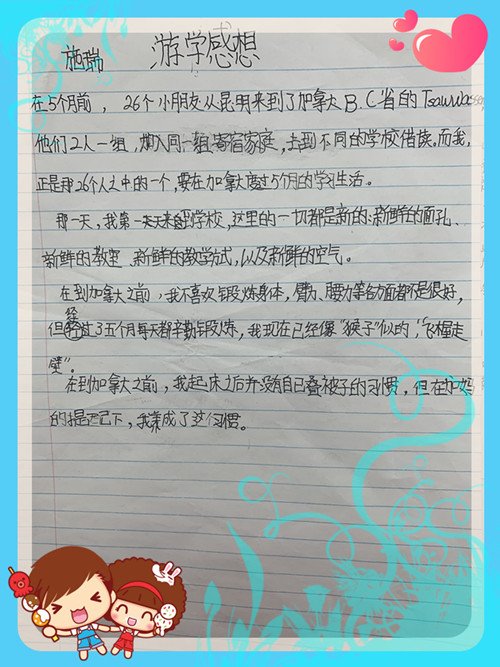 施瑞 游学感想
在5个月前，26个小朋友从昆明来到了加拿大B.C省的Tsawwassen
他们2人一组，加入同一组寄宿家庭，去到不同的学校借读。而我，
正是那26个人之中的一个，要在加拿大度过5个月的学习生活。
那一天，我第一天来到学校，这里的一切都是新的：新鲜的面孔、
新鲜的教室、新鲜的教学方式，以及新鲜的空气。
在到加拿大之前，我不喜欢锻炼身体，臂力、腰力等各方面都不是很好，
但经过了五个月每天都辛勤锻炼，我现在已经像“猴子”似的，“飞檐走
壁”。
在到加拿大之前，我起床之后并没有自己叠被子的习惯，但在加妈
的提醒下，我养成了这习惯。